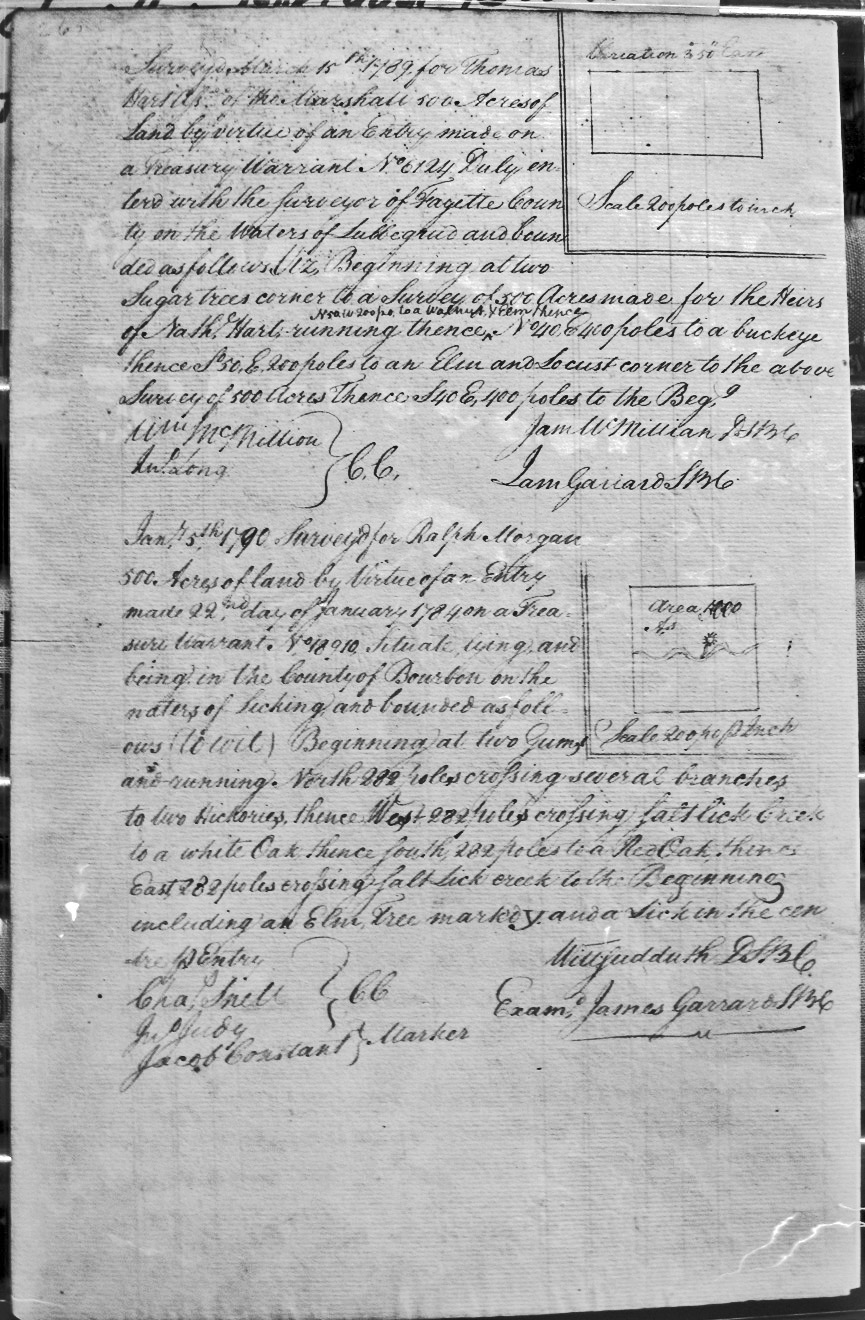 Survey'd March 15th 1789 for Thomas
Hart of the Marshall 500 Acres of
Land by virtue of an Entry made on
a Treasury Warrant No 6124 Duly en-
terd with the Surveyor of Fayette Coun
ty on the Waters of Lulbegrud and boun
ded as follows Viz, Beginning at two
Sugar trees corner to a Survey of 500 Acres made for the Heirs
N50W 200 po. to a Walnut & Elm thence
of Nathl Hart, running thence, No 40. E 400 poles to a buckeye
thence So 50, E, 200 poles to an Elm and Locust corner to the above
Survey of 500 Acres Thence S40 E, 400 poles to the Begg
Wm McMillion
Long
} C.C.
Jam McMillian D.S.B.C
Jam Garrard SBC
Variation 3 50 East
Scale 200 poles to inch
Jany 5th 1790 Survey'd for Ralph Morgan
500 Acres of land by Virtue of an Entry
made 22nd day of January 1784 on a Trea-
sury Warrant No 18910, Situate, lying, and
being in the County of Bourbon on the
waters of Licking and bounded as foll-
ows (towit) Beginning at two Gums
and running North 282 poles crossing several branches
to two Hickories, thence West 282 poles crossing salt lick Creek
to a white Oak thence South 282 poles to a Red Oak, thence
East 282 poles crossing salt Lick creek to the Beginning
including an Elm Tree markd y and a Lick in the cen
tre p Entry
Area
As
Scale 200 po p Inch
Chas Snell
Jno Judy
} CC
Jacob Constant } Marker
Will Sudduth D.S.B.C.
Examd James Garrard SBC